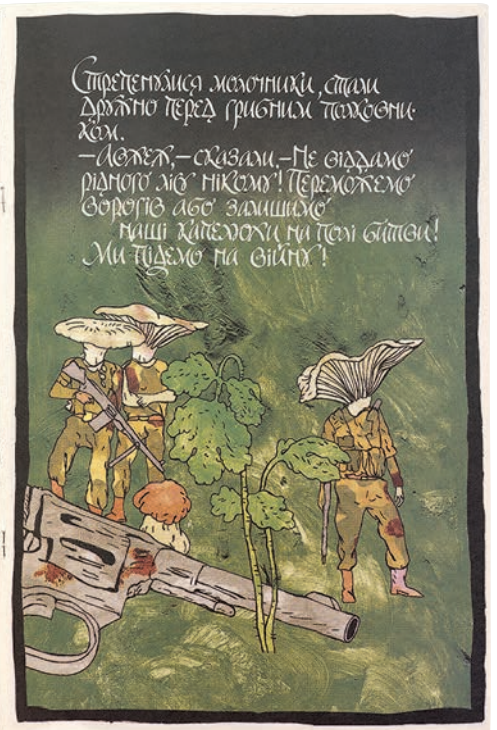 Стрепенулися молочники, стали
дружно перед грибним полковни-
ком.
— Авжеж, — сказали. — Не віддамо
рідного лісу нікому! Переможемо
ворогів або залишимо
наші капелюхи на полі битви!
Ми підемо на війну!